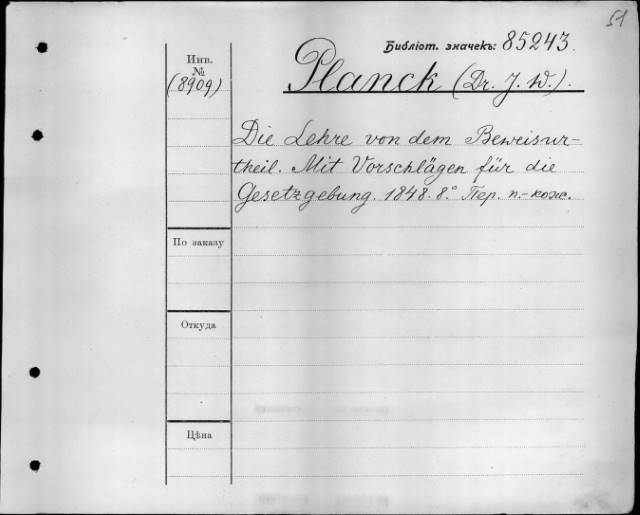 51
Библіот. значекъ: 85243.
Инв.
№
(8909)
Planck (Dr. J. W.).
Die Lehre von dem Beweisur-
theil. Mit Vorschlägen für die
Gesetzgebung. 1848. 8.° Пер. п.-кож.
По заказу
Откуда
Цѣна